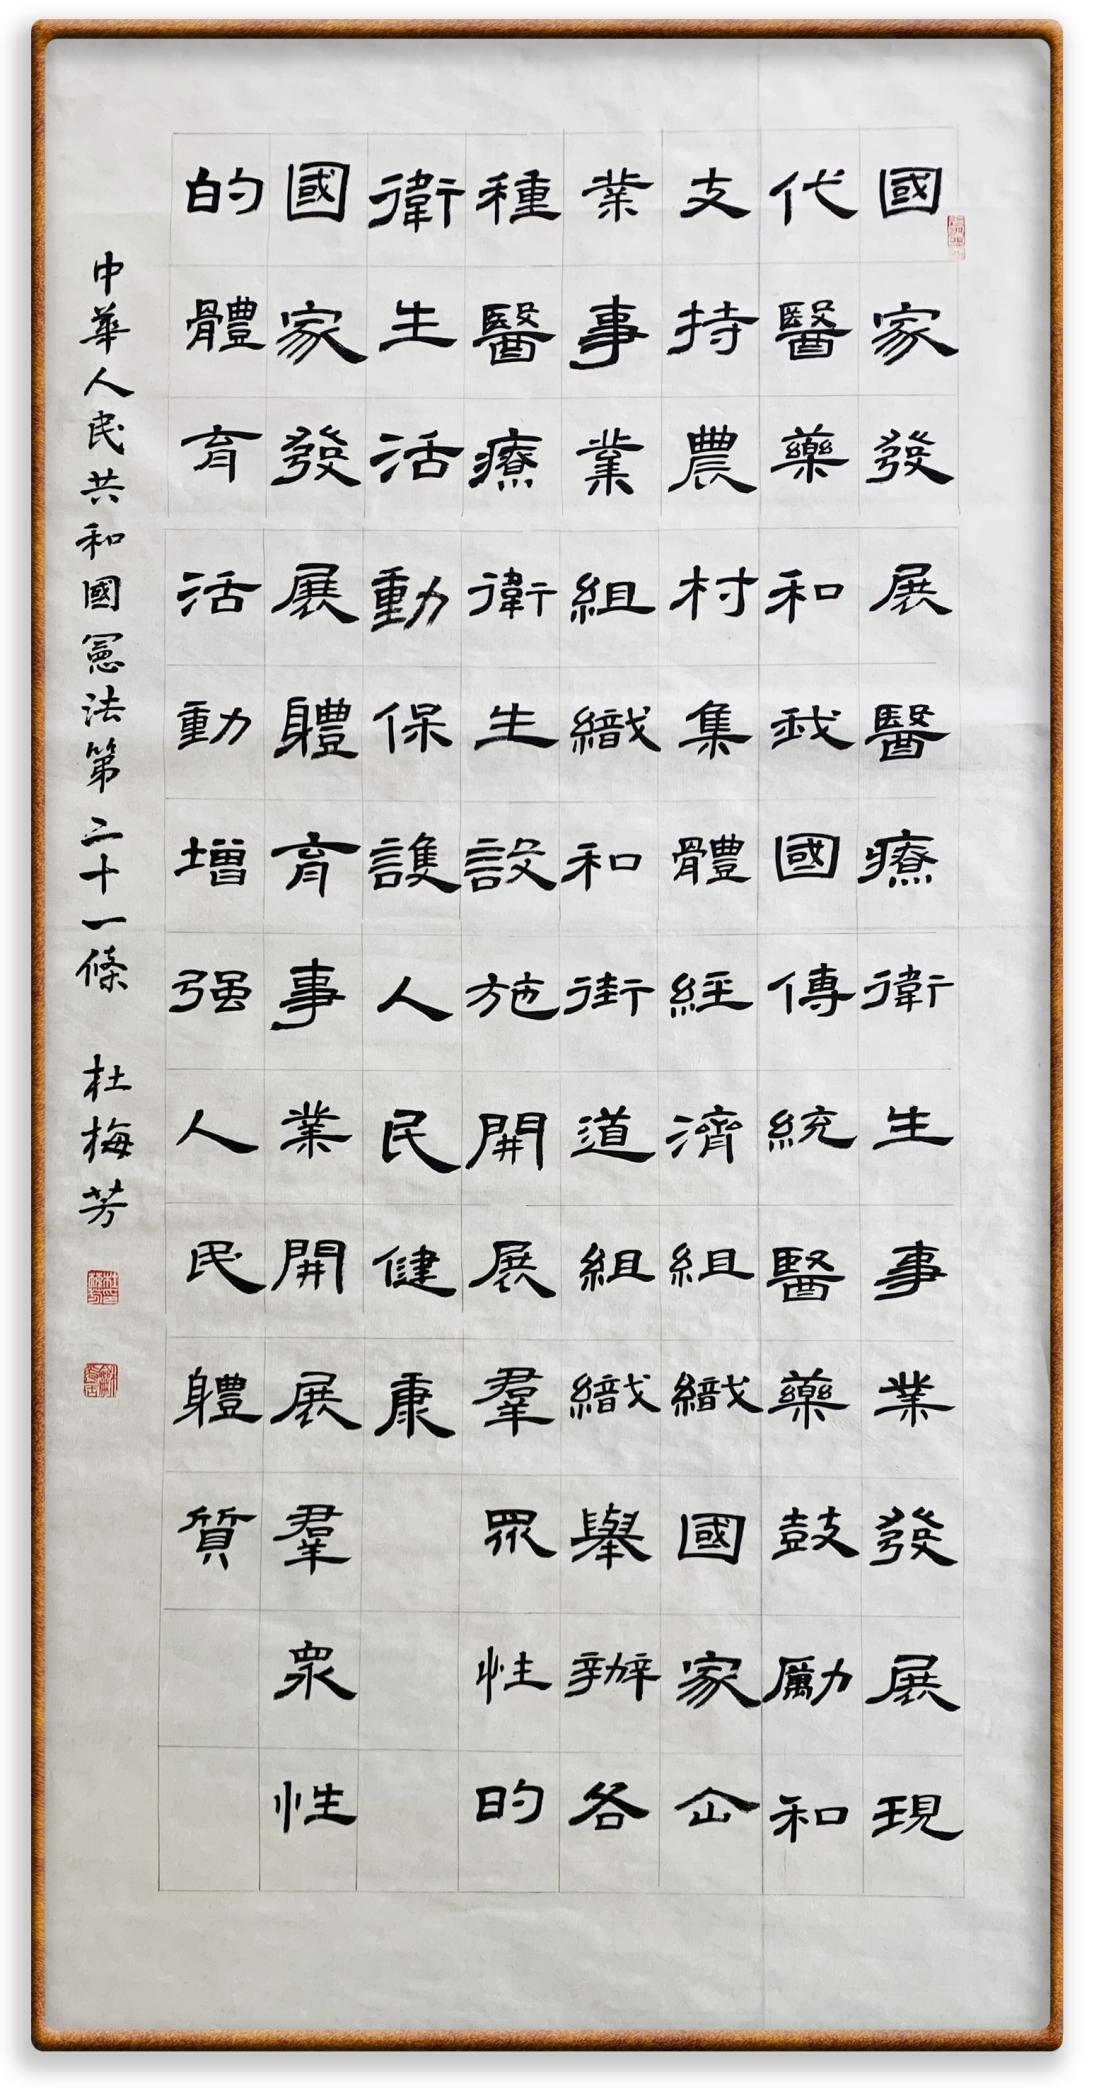 國家發展醫療衛生事業發展現
代醫藥和我國傳統醫藥鼓勵和
支持農村集體經濟組織國家企
業事業組織和街道組織舉辦各
種醫療衛生設施開展羣眾性的
衛生活動保護人民健康
國家發展體育事業開展羣眾性
的體育活動增强人民體質
中華人民共和國憲法第二十一條 杜梅芳